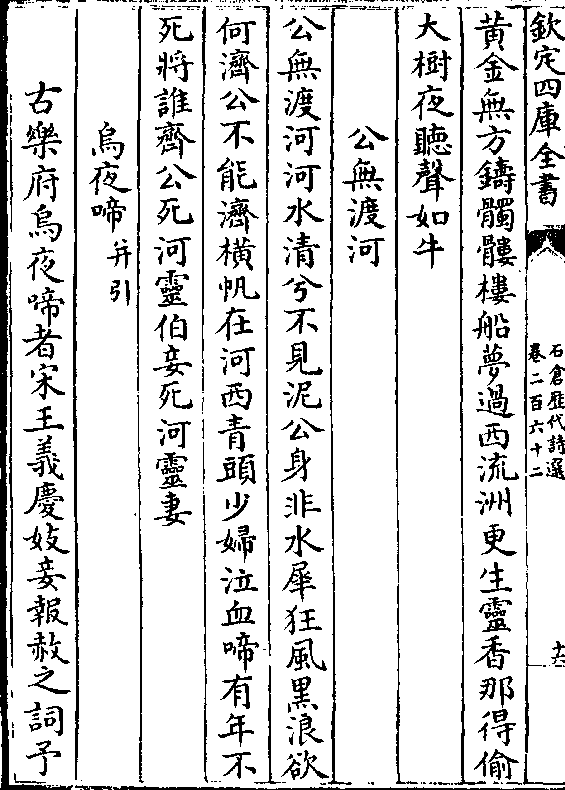 欽定四庫全書
石倉歷代詩選
卷二百六十二
十六
黃金無方鑄髑髏樓船夢過西流洲更生靈香那得偷
大樹夜聽聲如牛
公無渡河
公無渡河河水清兮不見泥公身非水犀狂風黑浪欲
何濟公不能濟橫帆在河西青頭少婦泣血啼有年不
死將誰齊公死河靈伯妾死河靈妻
烏夜啼并引
古樂府烏夜啼者宋王義慶妓妾報赦之詞予